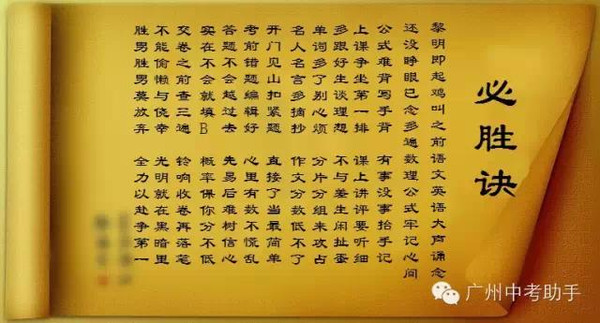 必胜诀
黎明即起鸡叫之前语文英语大声诵念
还没睁眼已念多遍数理公式牢记心间
公式难背写手背 有事没事抬手记
上课争坐第一排 课上讲评要听细
多跟好生谈理想 不与差生闲扯蛋
单词多了别心烦 分片分组来攻占
名人名言多摘抄 作文分数低不了
开门见山扣紧题 直接了当最简单
考前错题编辑好 心里有数不慌乱
答题不会越过去 先易后难树信心
实在不会就填B 概率保你分不低
交卷之前查三遍 铃响收卷再落笔
不能偷懒与侥幸 光明就在黑暗里
胜男胜男莫放弃 全力以赴争第一
广州中考助手